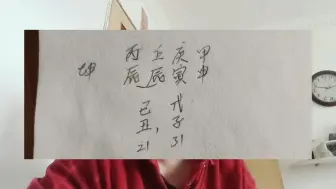 坤 丙 壬 庚 甲
辰 辰 寅 申
己 戊
丑, 子
21 31